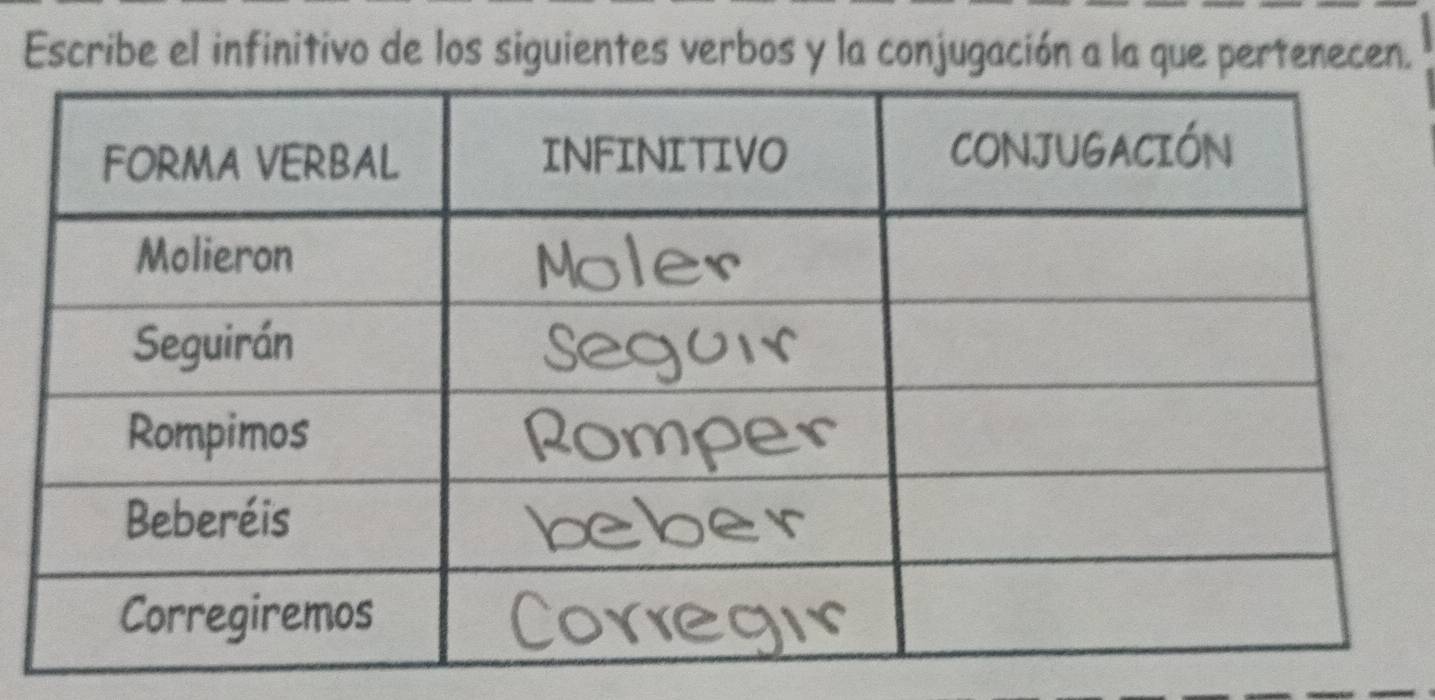 Escribe el infinitivo de los siguientes verbos y la conjugación a la que pertenecen.
FORMA VERBAL INFINITIVO CONJUGACIÓN
Molieron Moler
Seguirán Seguir
Rompimos Romper
Beberéis beber
Corregiremos Corregir